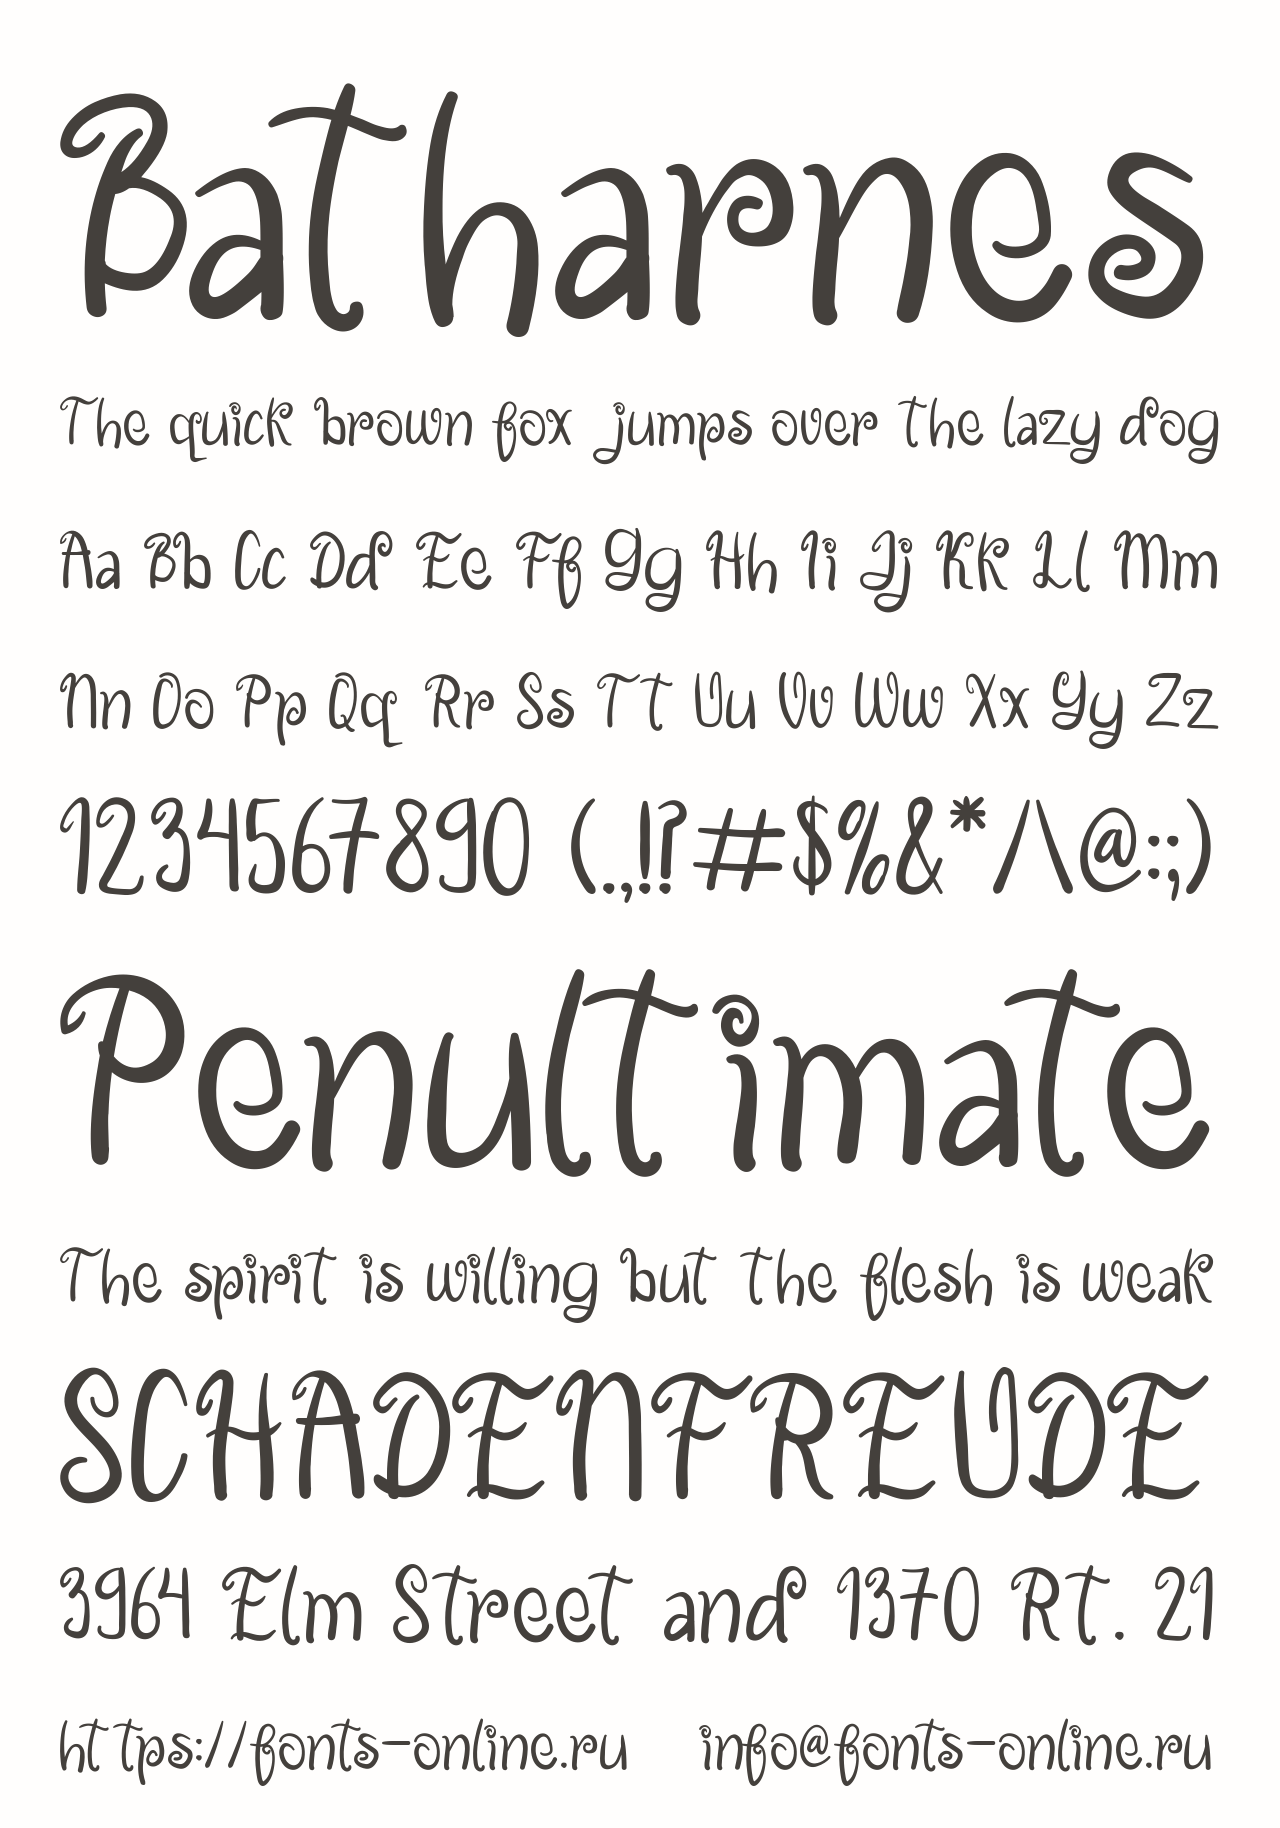 Batharnes
The quick brown fox jumps over the lazy dog
Aa Bb Cc Dd Ee Ff Gg Hh Ii Jj Kk Ll Mm
Nn Oo Pp Qq Rr Ss Tt Uu Vv Ww Xx Yy Zz
1234567890 (.,!?#$%&*/\@:;)
Penultimate
The spirit is willing but the flesh is weak
SCHADENFREUDE
3964 Elm Street and 1370 Rt. 21
https://fonts-online.ru info@fonts-online.ru